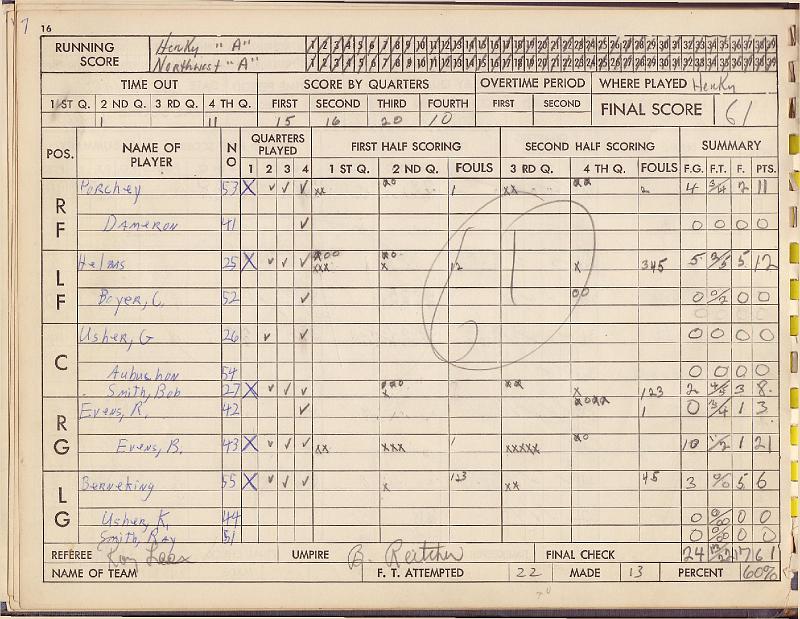 7
16
RUNNING SCORE
Henky "A" 1 2 3 4 5 6 7 8 9 10 11 12 13 14 15 16 17 18 19 20 21 22 23 24 25 26 27 28 29 30 31 32 33 34 35 36 37 38 39
Northwest "A" 1 2 3 4 5 6 7 8 9 10 11 12 13 14 15 16 17 18 19 20 21 22 23 24 25 26 27 28 29 30 31 32 33 34 35 36 37 38 39
TIME OUT SCORE BY QUARTERS OVERTIME PERIOD WHERE PLAYED Henky
1 ST Q. 2 ND Q. 3 RD Q. 4 TH Q. FIRST SECOND THIRD FOURTH FIRST SECOND FINAL SCORE 61
1 11 15 16 20 10
POS. NAME OF PLAYER NO QUARTERS PLAYED FIRST HALF SCORING SECOND HALF SCORING SUMMARY
1 2 3 4 1 ST Q. 2 ND Q. FOULS 3 RD Q. 4 TH Q. FOULS F.G. F.T. F. PTS.
RF Porchey 53 X ✓ ✓ ✓ xx 1 xx 2 4 3/4 2 11
Dameron 41 ✓ 0 0 0 0
LF Helms 25 X ✓ ✓ ✓ xxx x 12 x 345 5 2/5 5 12
Boyer, C. 52 ✓ 00 0 0/2 0 0
C Usher, G 26 ✓ ✓ 0 0 0 0
Aubuchon 54 0 0 0 0
Smith, Bob 27 X ✓ ✓ ✓ x xx x 123 2 4/5 3 8
RG Evens, R. 42 ✓ 1 0 3/4 1 3
Evens, B. 43 X ✓ ✓ ✓ xx xxx 1 xxxxx 10 1/2 1 21
LG Berneking 55 X ✓ ✓ ✓ x 123 xx 45 3 0/0 5 6
Usher, K. 44 0 0/0 0 0
Smith, Ray 51 0 0/0 0 0
61
REFEREE UMPIRE B. FINAL CHECK 24 13/22 17 61
NAME OF TEAM F. T. ATTEMPTED 22 MADE 13 PERCENT 60%